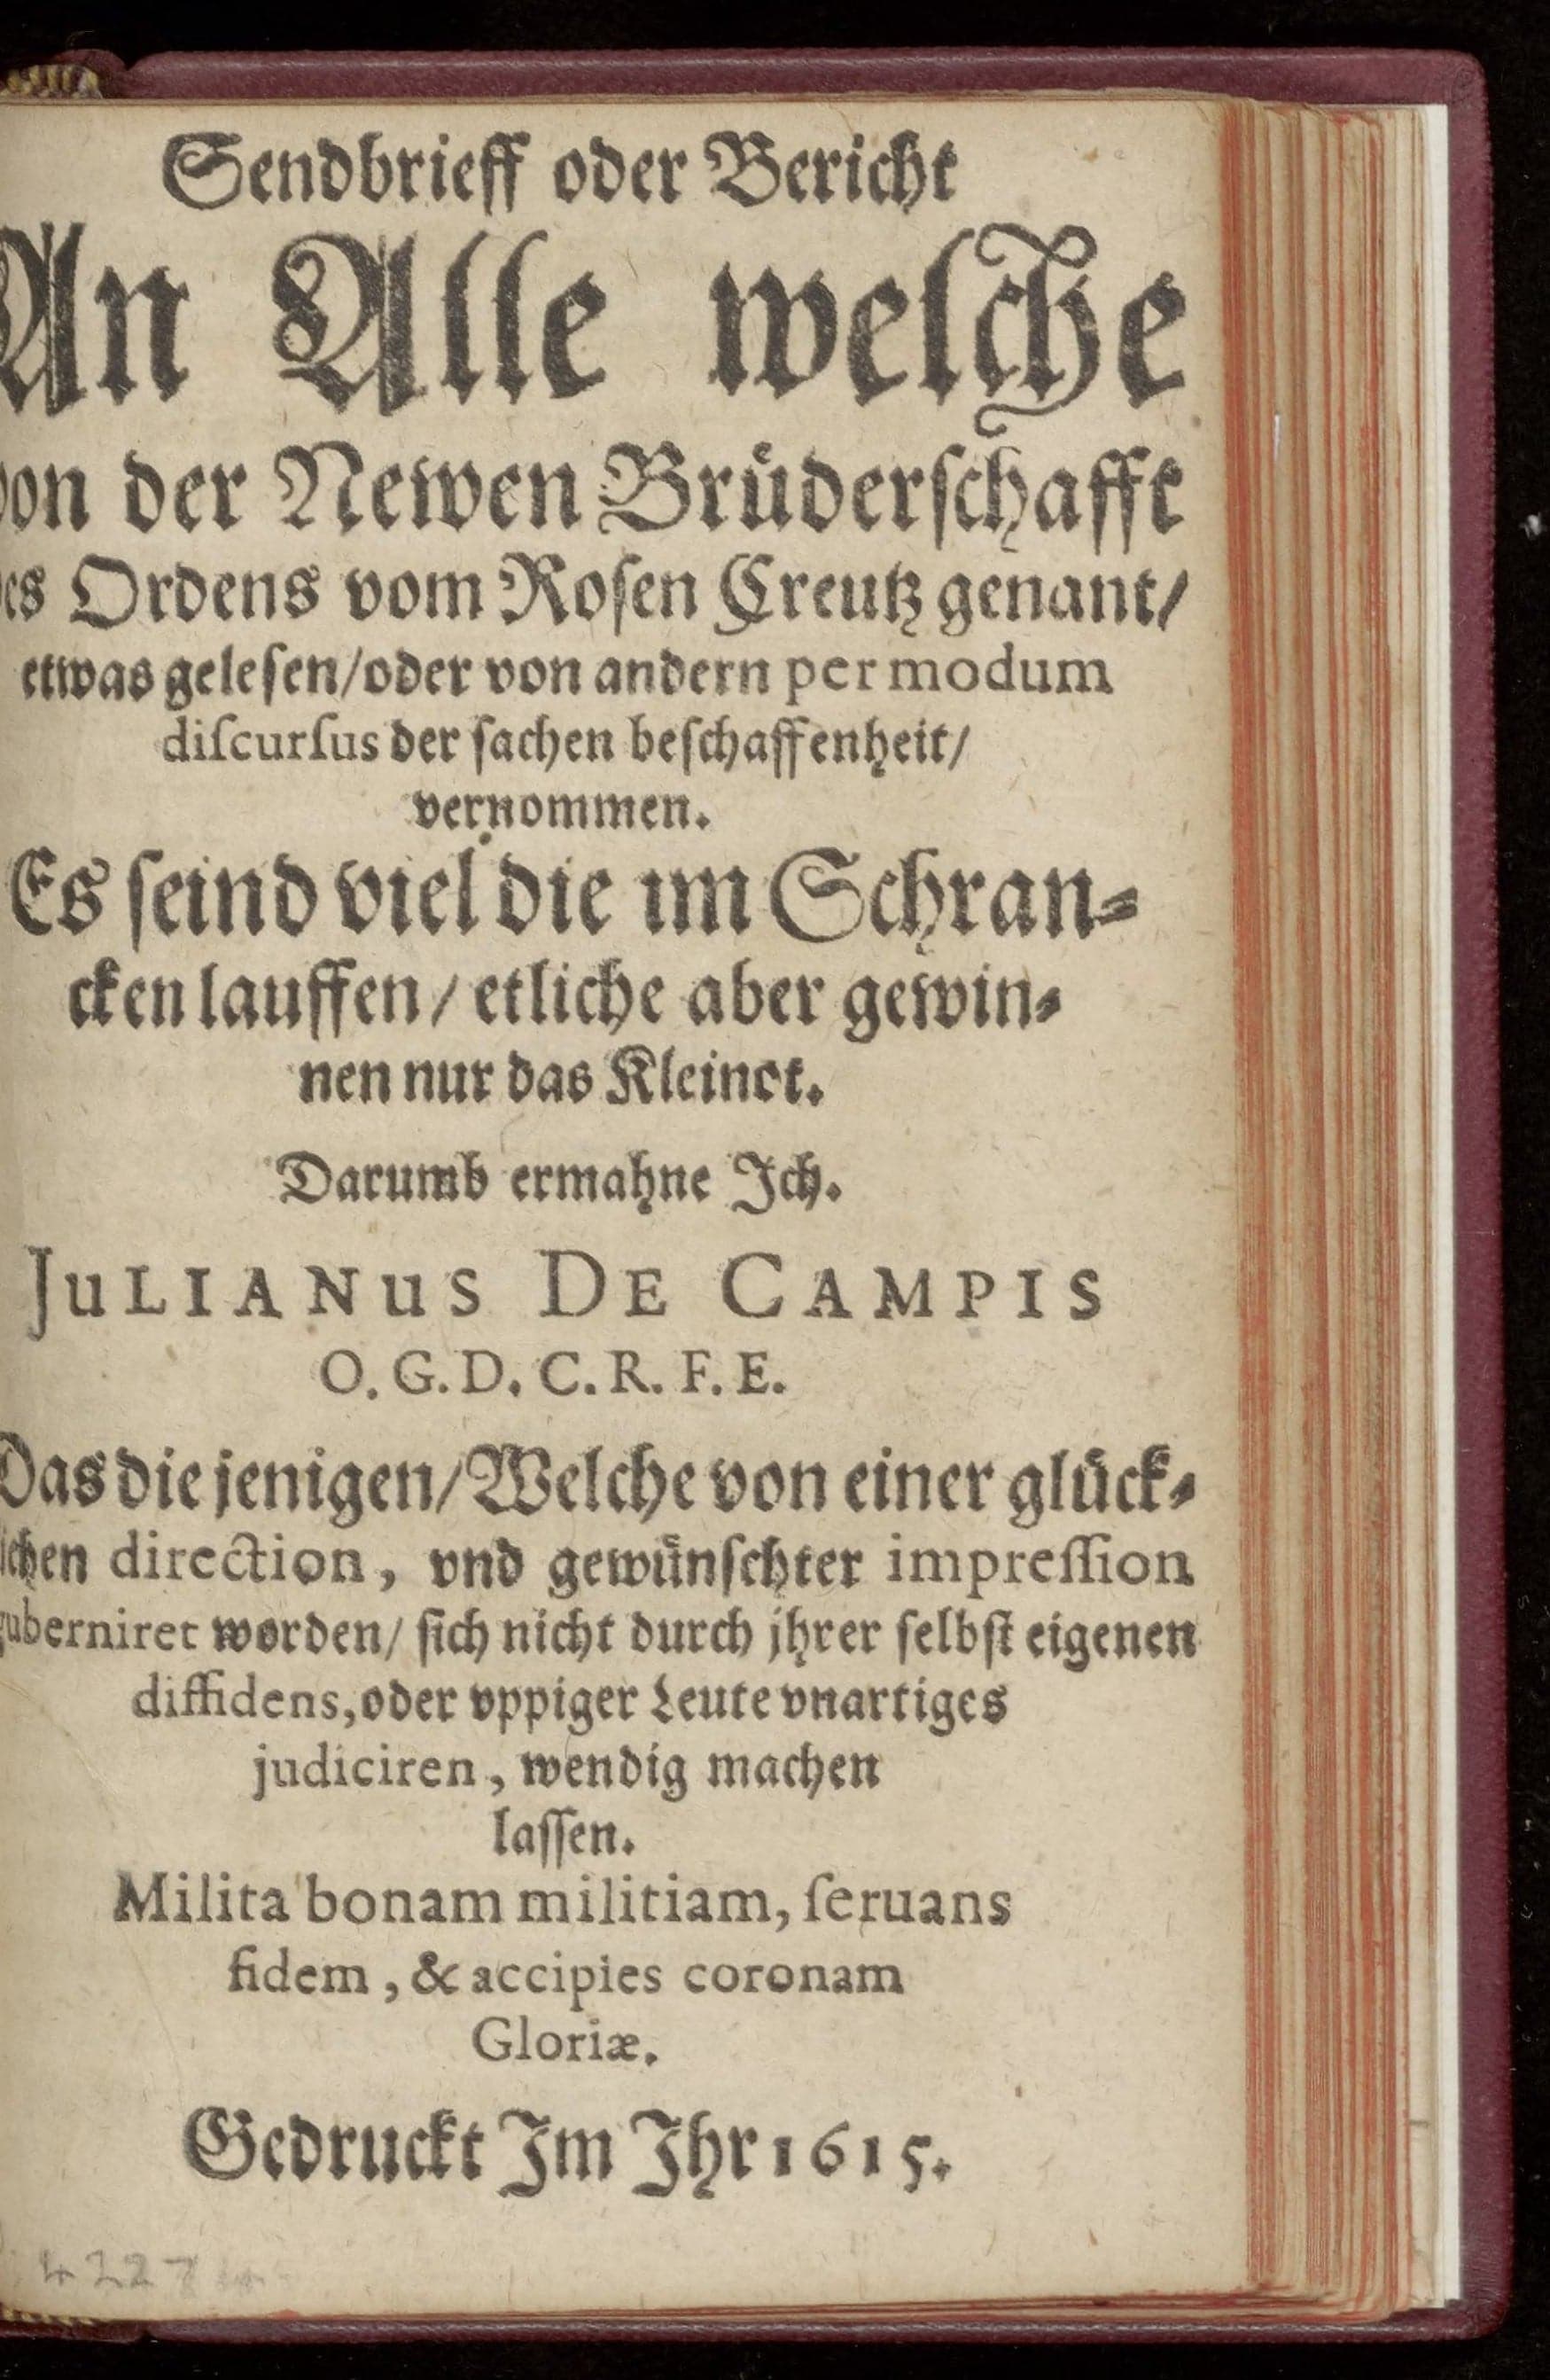 Sendbrieff oder Bericht
An Alle welche
von der Newen Bruͤderſchafft
des Ordens vom Roſen Creutz genant/
etwas geleſen/oder von andern per modum
diſcurſus der ſachen beſchaffenheit/
vernommen.
Es ſeind viel die im Schran⸗
cken lauffen/ etliche aber gewin⸗
nen nur das Kleinot.
Darumb ermahne Ich.
JuLIANuS DE CAMPIS
O. G. D. C. R. F. E.
Das die jenigen/Welche von einer gluͤck⸗
lichen direction, vnd gewuͤnſchter impreſſion
guberniret worden/ ſich nicht durch jhrer ſelbſt eigenen
diffidens, oder vppiger Leute vnartiges
judiciren, wendig machen
laſſen.
Milita bonam militiam, ſeruans
fidem, & accipies coronam
Gloriæ.
Gedruckt Im Ihr 1615.
4227